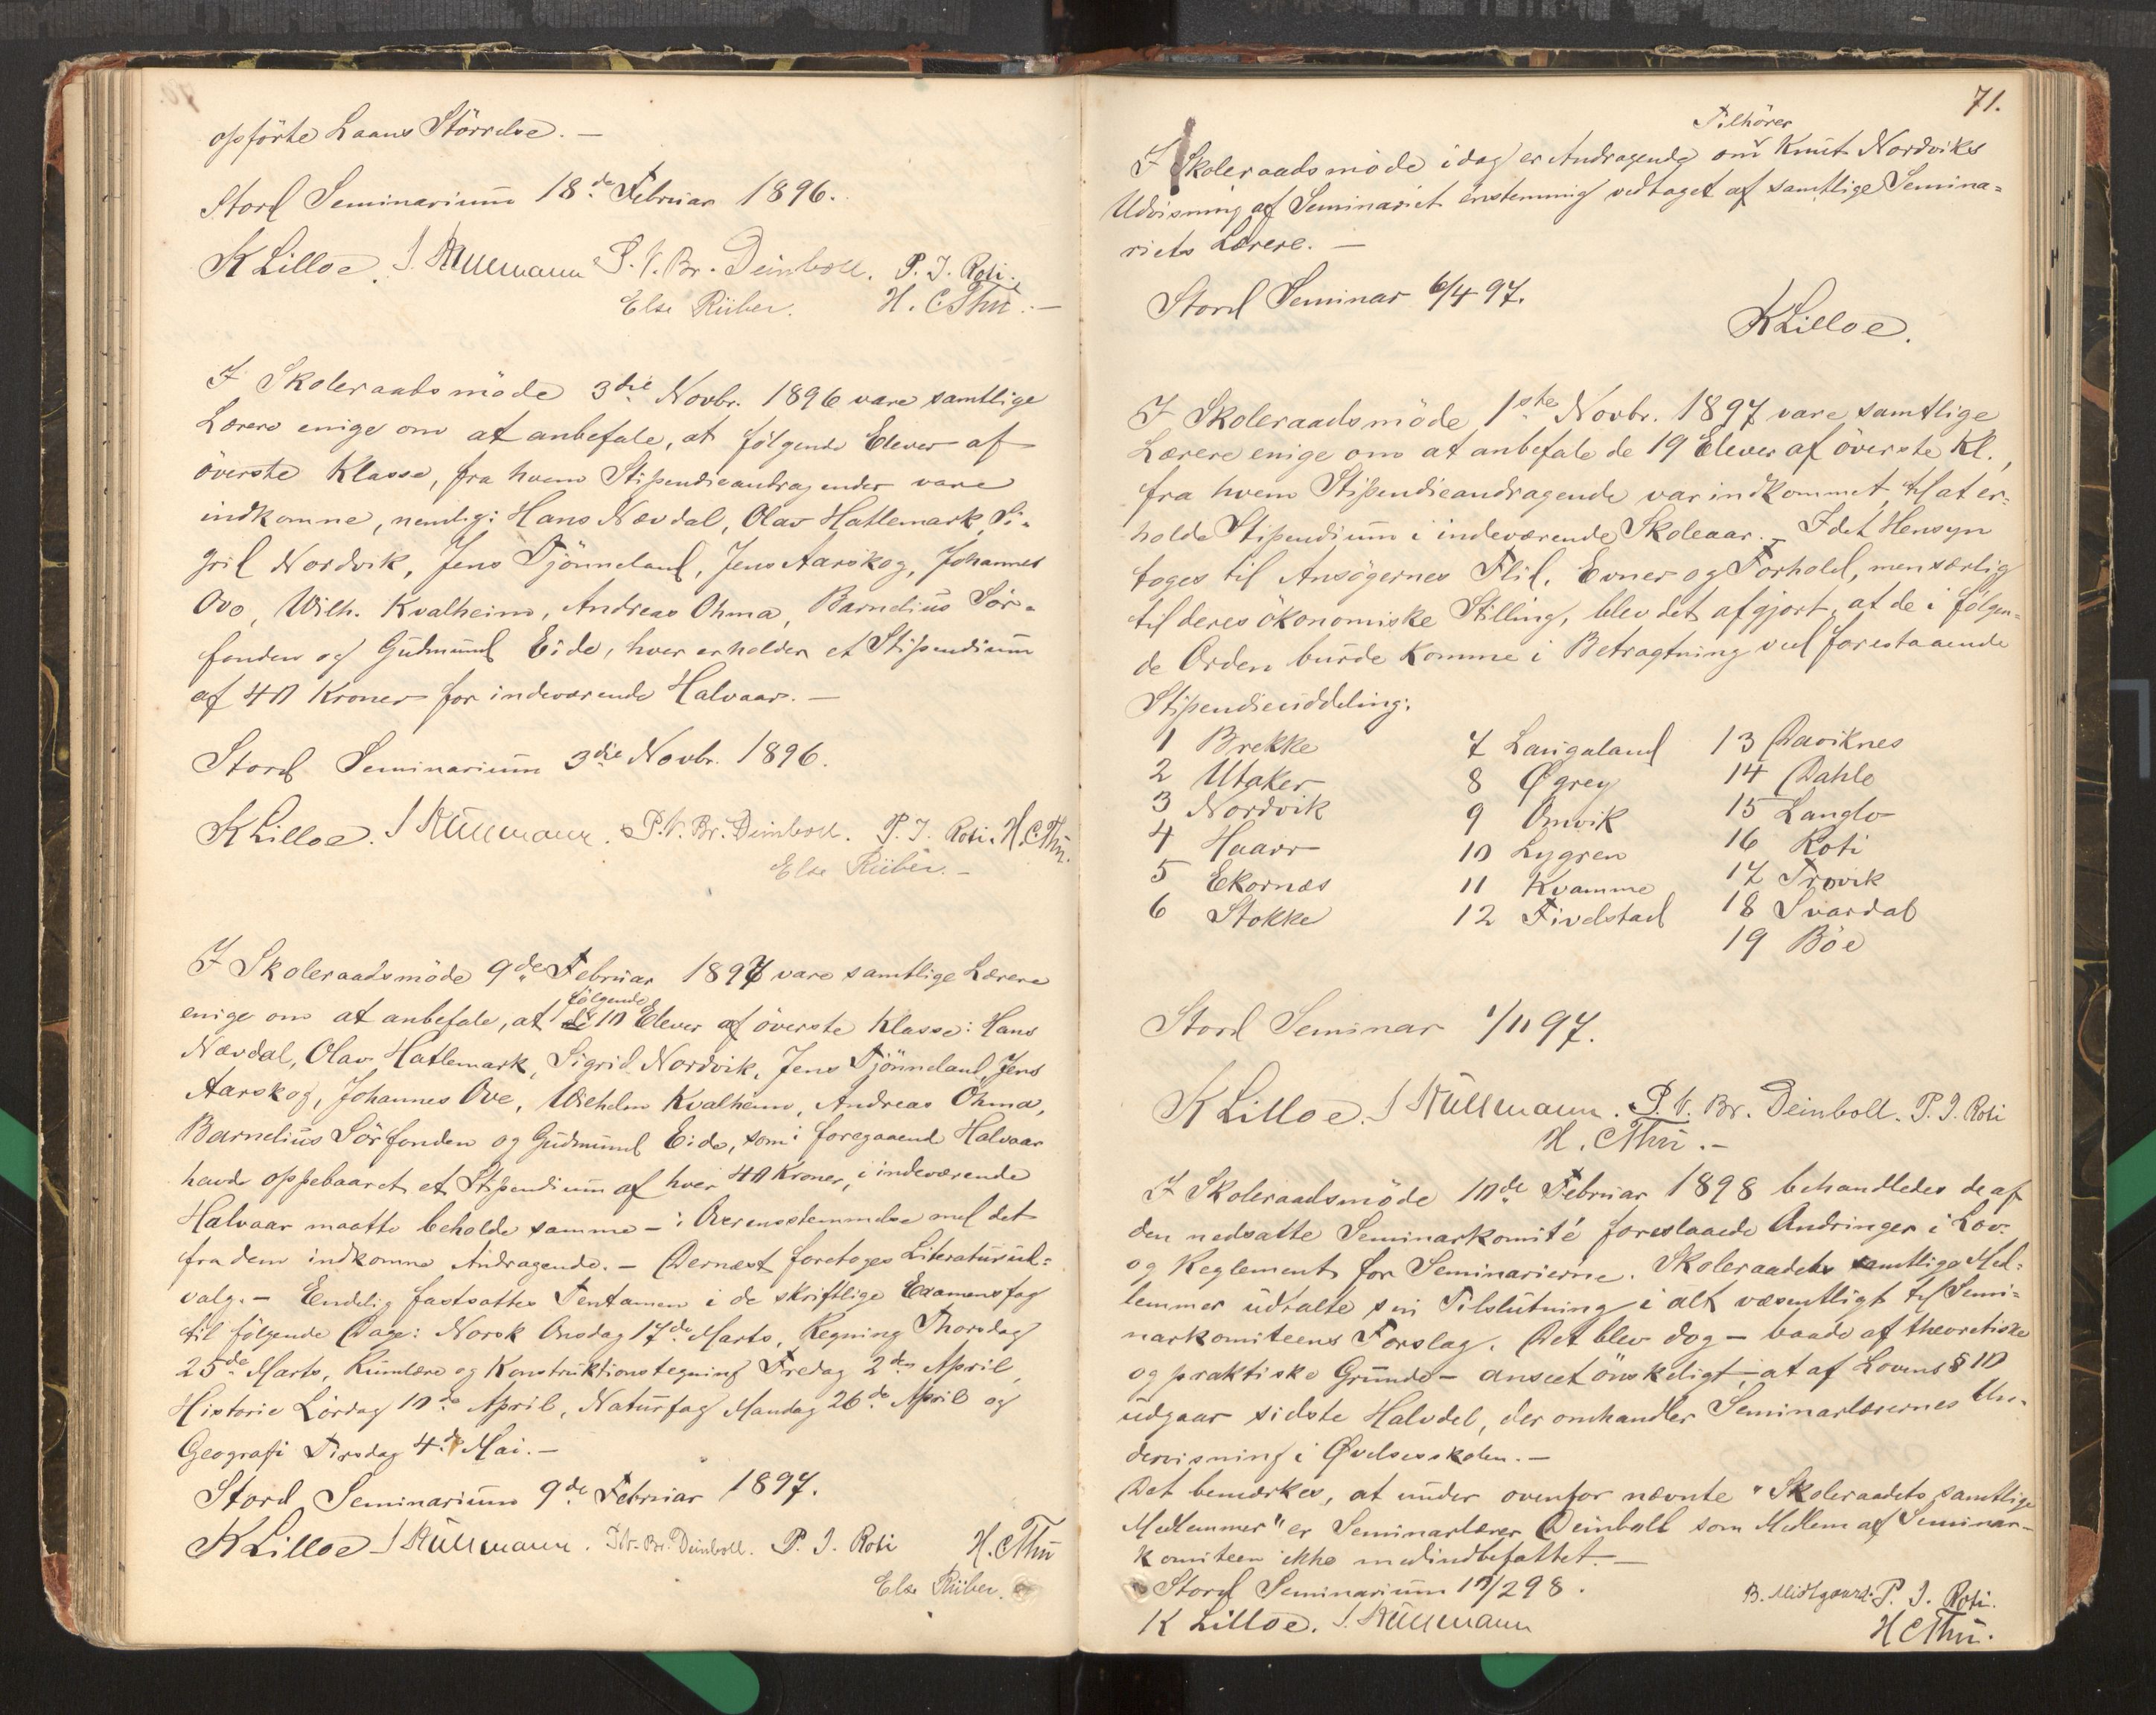 opförte Laans Störrelse. —
Stord Seminarium 18de Februar 1896.
K Lilloe. J. Rullmann P. V. Br. Deinboll. P. J. Roti.
Else Rüber. H. C. Thu. —
I Skoleraadsmöde 3die Novbr. 1896 vare samtlige
Lærere enige om at anbefale, at følgende Elever af
överste Klasse, fra hvem Stipendieandragender vare
indkomne, nemlig: Hans Nævdal, Olav Hatlemark, Si-
grid Nordvik, Jens Tjönneland, Jens Aarskog, Johannes
Ove, Wilh. Kvalheim, Andreas Ohma, Barnelius Sör-
fonden og Gudmund Eide, hver erholder et Stipendium
af 40 Kroner for indeværende Halvaar. —
Stord Seminarium 3die Novbr. 1896.
K Lilloe. J Rullmann. P. V. Br. Deinboll. P. J. Roti. H. C. Thu.
Else Rüber. —
I Skoleraadsmöde 9de Februar 1897 vare samtlige Lærere
følgende
enige om at anbefale, at de 10 Elever af överste Klasse: Hans
Nævdal, Olav Hatlemark, Sigrid Nordvik, Jens Tjönneland, Jens
Aarskog, Johannes Ove, Wilhelm Kvalheim, Andreas Ohma,
Barnelius Sörfonden og Gudmund Eide, som i foregaaend Halvaar
havde oppebaaret et Stipendium af hver 40 Kroner, i indeværende
Halvaar maatte beholde samme — i Overensstemmelse med det
fra dem indkomne Andragende. — Dernæst foretoges Literaturud-
valg. — Endelig fastsattes Tentamen i de skriftlige Examensfag
til følgende Dage: Norsk Onsdag 17de Marts, Regning Thorsdag
25de Marts, Rumlære og Konstruktionstegning Fredag 2den April,
Historie Lördag 10de April, Naturfag Mandag 26de April og
Geografi Tirsdag 4de Mai. —
Stord Seminarium 9de Februar 1897.
K Lilloe J Rullmann. P. V. Br. Deinboll. P. J. Roti H. C Thu
Else Rüber.
71.
Tilhörer
I Skoleraadsmöde idag er Andragende om Knut Nordviks
Udvisning af Seminariet enstemmig vedtaget af samtlige Semina-
riets Lærere. —
Stord Seminar 6/4 97.
K Lilloe.
I Skoleraadsmöde 1ste Novbr. 1897 vare samtlige
Lærere enige om at anbefale de 19 Elever af överste Kl.,
fra hvem Stipendieandragende var indkommet, til at er-
holde Stipendium i indeværende Skoleaar. — Idet Hensyn
toges til Ansögernes Flid, Evner og Forhold, men særlig
til deres ökonomiske Stilling, blev det afgjort, at de i følgen-
de Orden burde komme i Betragtning ved forestaaende
Stipendieuddeling:
1 Brekke 7 Langaland 13 Daviknes
2 Utaker 8 Øgrey 14 Dahle
3 Nordvik 9 Omvik 15 Langlo
4 Haarr 10 Lygren 16 Roti
5 Ekornæs 11 Kvamme 17 Trovik
6 Stokke 12 Fivelstad 18 Svardal
19 Böe
Stord Seminar 1/11 97.
K Lilloe. J Rullmann. P. V. Br. Deinboll. P. J. Roti
H. C Thu. —
I Skoleraadsmöde 10de Februar 1898 behandledes de af
den nedsatte Seminarkomité foreslaaede Ændringer i Lov
og Reglement for Seminarierne. Skoleraadets samtlige Med-
lemmer udtalte sin Tilslutning i alt væsentligt til Semi-
narkomiteens Forslag. Det blev dog — baade af theoretiske
og praktiske Grunde — anseet önskeligt, at af Lovens § 10
udgaar sidste Halvdel, der omhandler Seminarlærernes Un-
dervisning i Øvelsesskolen. —
Det bemærkes, at under ovenfor nævnte "Skoleraadets samtlige
Medlemmer" er Seminarlærer Deinboll som Medlem af Seminar-
komiteen ikke medindbefattet. —
Stord Seminarium 10/2 98. B. Midtgaard. P. J. Roti.
K Lilloe. J. Rullmann H C Thu.